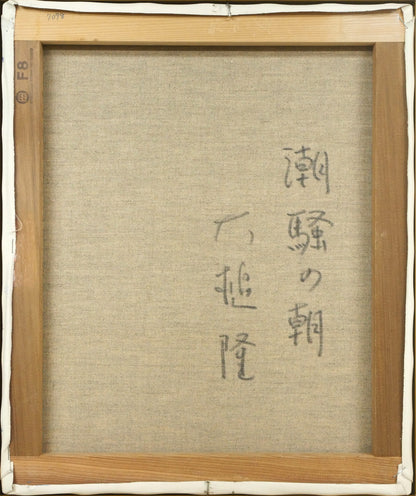 F8
潮騒の朝
大槌隆